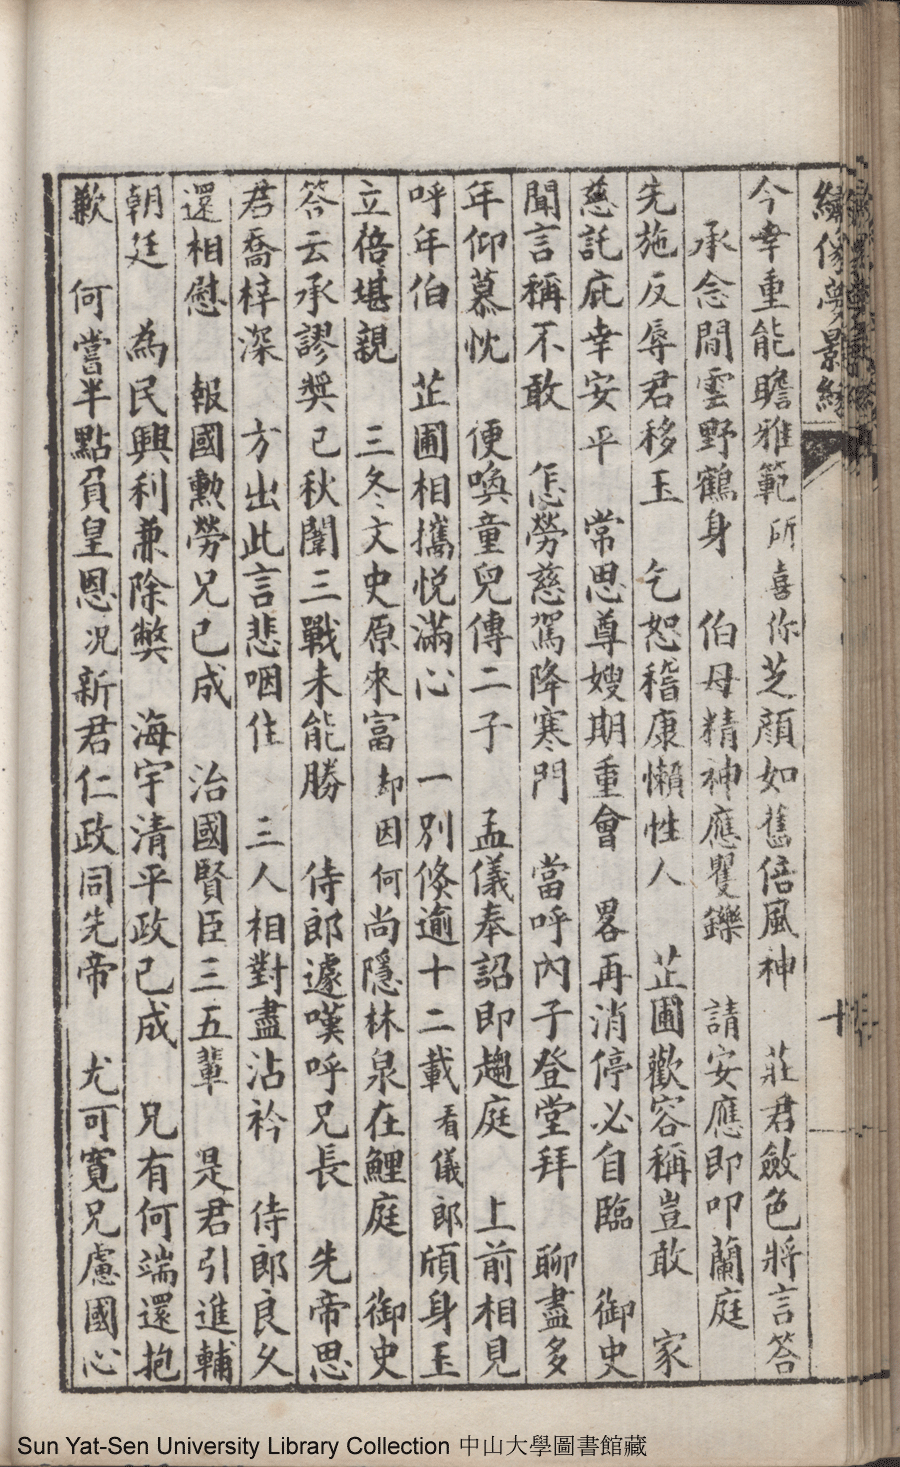 繡像夢影緣
十
今幸重能瞻雅範 所喜你芝顏如舊倍風神 莊君斂色將言答
承念閒雲野鶴身 伯母精神應矍鑠 請安應即叩蘭庭
先施反辱君移玉 乞恕稽康懶性人 芷圃歡容稱豈敢 家
慈託庇幸安平 常思尊嫂期重會 畧再消停必自臨 御史
聞言稱不敢 怎勞慈駕降寒門 當呼內子登堂拜 聊盡多
年仰慕忱 便喚童兒傳二子 孟儀奉詔即趨庭 上前相見
呼年伯 芷圃相攜悅滿心 一別倐逾十二載 看儀郎頎身玉
立蓓堪親 三冬文史原來富 却因何尚隱林泉在鯉庭 御史
答云承謬獎 已秋闈三戰未能勝 侍郎遽嘆呼兄長 先帝思
君喬梓深 方出此言悲咽住 三人相對盡沾衿 侍郎良久
還相慰 報國勲勞兄已成 治國賢臣三五輩 是君引進輔
朝廷 為民興利兼除弊 海宇清平政已成 兄有何端還抱
歉 何嘗半點負皇恩 况新君仁政同先帝 尤可寬兄慮國心
Sun Yat-Sen University Library Collection 中山大學圖書館藏